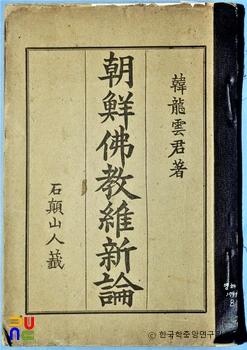 韓龍雲君著
朝鮮佛教維新論
石顚山人籤
ⓒ 한국학중앙연구원